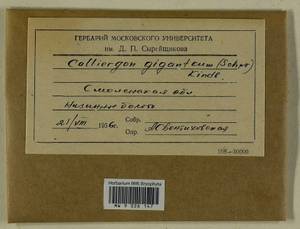 ГЕРБАРИЙ МОСКОВСКОГО УНИВЕРСИТЕТА
им. Д. П. Сырейщикова
Calliergon giganteum (Schpr)
Kindb.
Смоленская обл
Низинн. болото
21/VIII 1956 г. Собр.
Опр.
Herbarium MW, Bryophyta